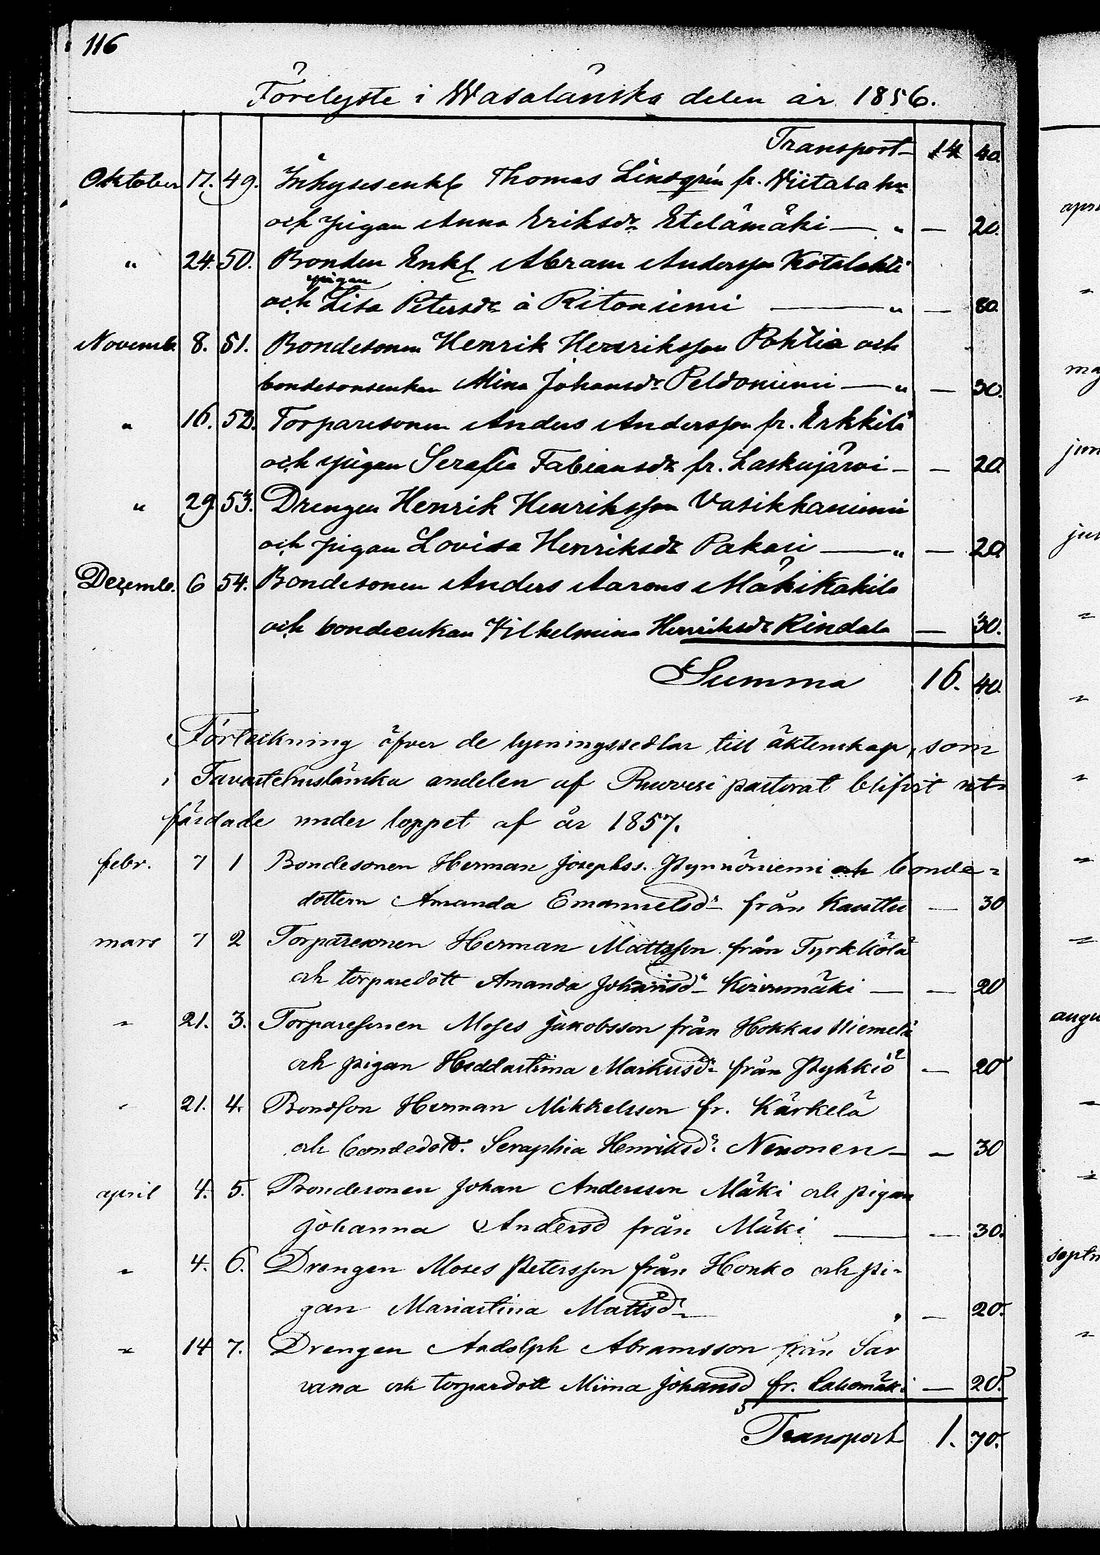 116
Förelyste i Wasalänska delen år 1856.
Transport 14 40.
Oktober 17. 49. Inhysesenkl Thomas Lindgrén fr. Viitala
och pigan Anna Eriksdr Etelämäki — " — 20.
" 24. 50. Bonden Enkl Abram Andersson Kotalahti
pigan
och Lisa Petersdr å Ritoniemi — " — 30.
Novemb. 8. 51. Bondesonen Henrik Henriksson Pohtio och
bondesonsenkan Mina Johansdr Peldoniemi — " — 30.
" 16. 52. Torparesonen Anders Andersson fr. Erkkilä
och pigan Serafia Fabiansdr fr. Laskujärvi — — 20.
" 29. 53. Drengen Henrik Henriksson Vasikkaniemi
och pigan Lovisa Henriksdr Pakari — " — 20.
Dezemb. 6 54. Bondesonen Anders Aarons Mäkikakila
och bondeenkan Vilhelmina Henriksdr Rindala — 30.
Summa 16. 40.
Förteckning öfver de lysningssedlar till äktenskap, som
i Tavastehuslänska andelen af Ruovesi pastorat blifvit ut-
färdade under loppet af år 1857.
febr. 7 1 Bondesonen Herman Josephss. Pynnöniemi och bonde-
dottern Amanda Emanuelsdr från Kauttu — 30
mars 7 2 Torparesonen Herman Mattsson från Tyrkkölä
och torparedott Amanda Johansdr Koivumäki — — 20
" 21. 3. Torparesonen Moses Jakobsson från Hokkas Niemelä
och pigan Heddastina Markusdr från Pyhkiö — 20
" 21. 4. Bondson Herman Mikkelsson fr. Kärkelä
och bondedott. Seraphia Henriksdr Nenonen — — 30
april 4. 5. Bondesonen Johan Andersson Mäki och pigan
Johanna Andersd från Mäki — — 30.
" 4. 6. Drengen Moses Petersson från Honko och pi-
gan Mariastina Mattsdr " — 20.
" 14 7. Drengen Andolph Abramsson från Sar
vana och torpardott Miina Johansd fr. Lahomäki — 20.
Transport 1. 70.